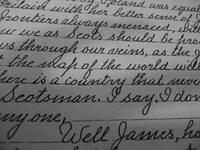 land was equal
Britain with her better sense of
frontiers always menaced, with
now we as Scots should be pro
us through our skins, as the J
t the map of the world will
there is a country that never
Scotsman. I say, I don
anyone,
Well James, ho